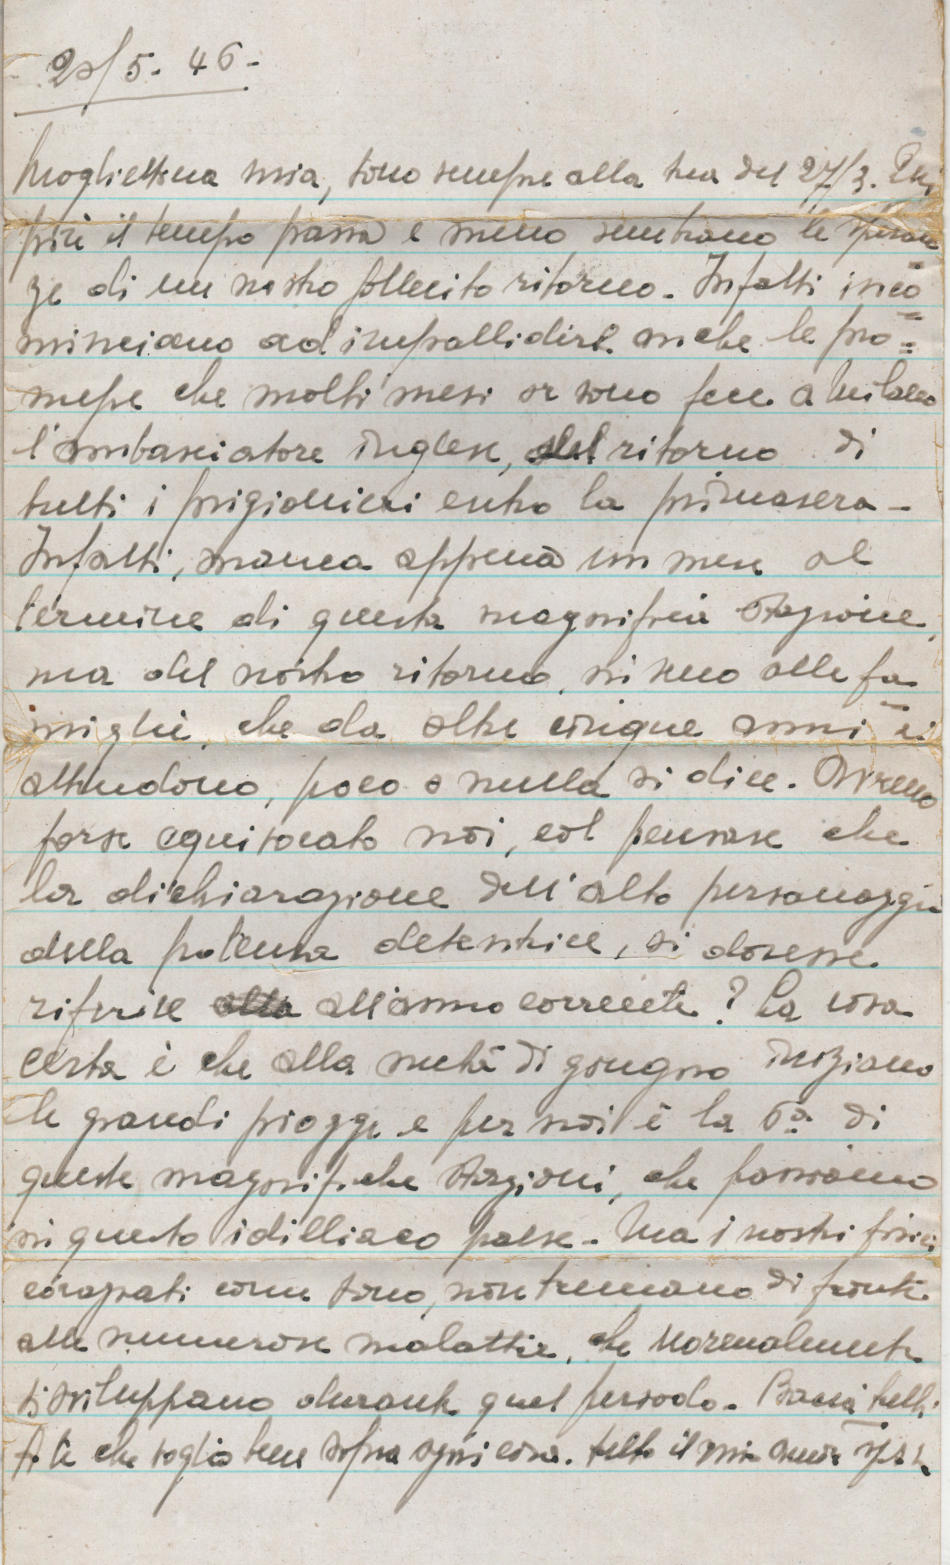 2 /5. 46.
Mogliettina mia, sono sempre alla tua del 27/3. Più
più il tempo passa e meno sembrano le speran
ze di un nostro sollecito ritorno. Infatti inco=
minciano ad impallidire anche le pro=
messe che molti mesi or sono fece a Milano
l'ambasciatore inglese, del ritorno di
tutti i prigionieri entro la primavera -
Infatti, manca appena un mese al
termine di questa magnifica stagione,
ma del nostro ritorno in seno alle fa
miglie, che da oltre cinque anni ci
attendono, poco o nulla si dice. Avremo
forse equivocato noi, col pensare che
la dichiarazione dell'alto personaggio
della potenza detentrice, si dovesse
riferire all'anno corrente? La cosa
certa è che alla metà di giugno iniziano
le grandi piogge e per noi è la 6ª di
queste magnifiche stagioni, che passiamo
in questo idilliaco paese. Ma i nostri fisici
corazzati come sono, non tremano di fronte
alle numerose malattie, che normalmente
si sviluppano durante quel periodo. Bacia tutti.
A te che voglio bene sopra ogni cosa. tutto il mio